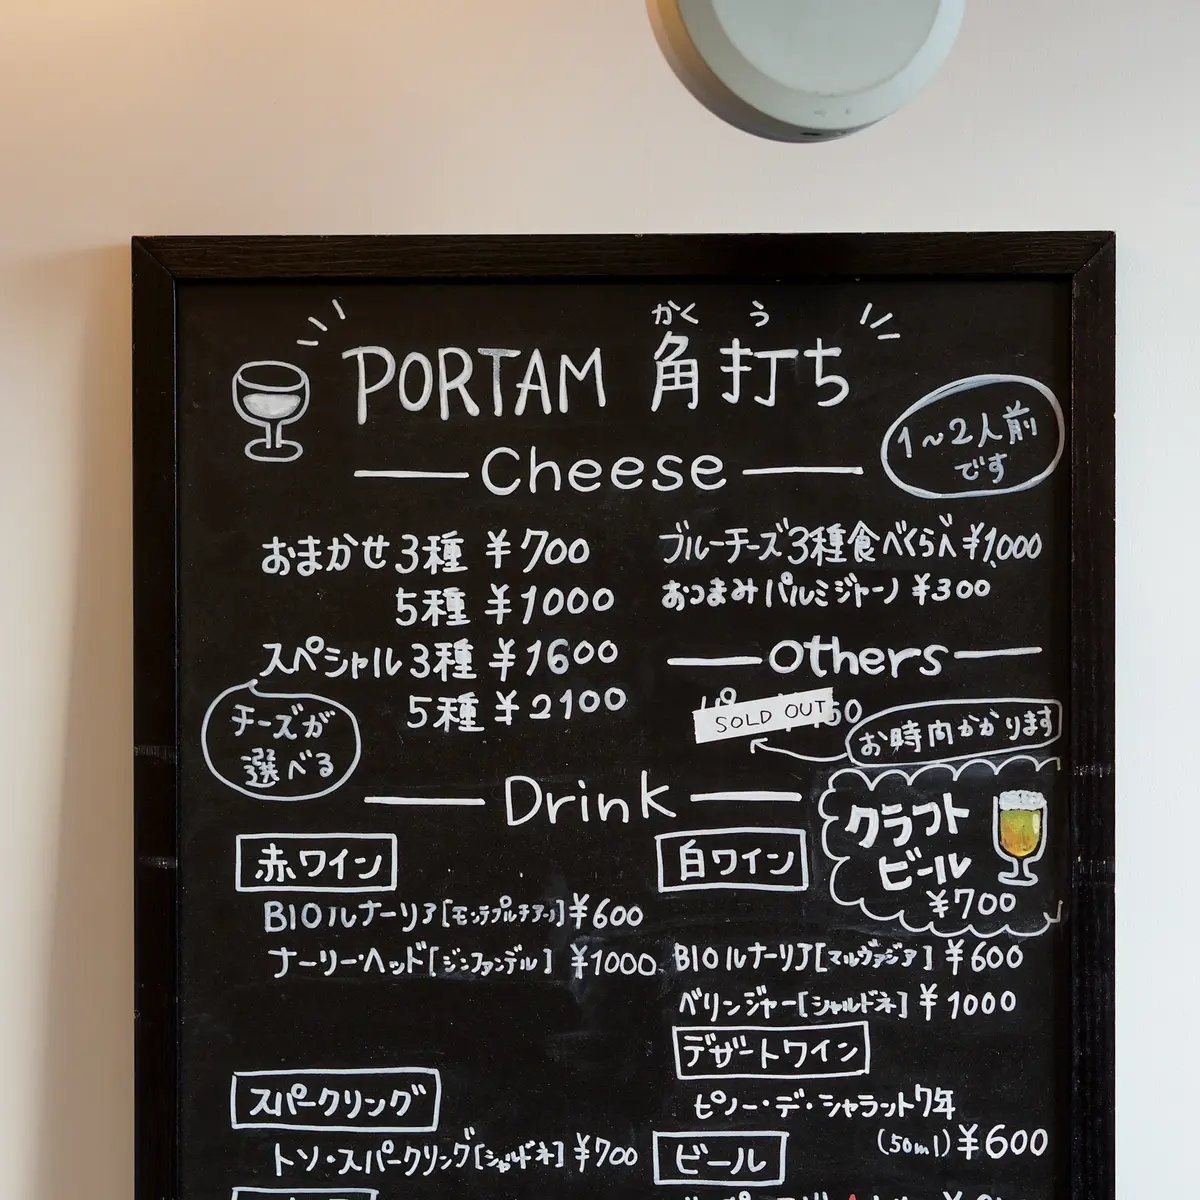 かく う
PORTAM 角打ち
Cheese
1~2人前
です
おまかせ3種 ¥700
5種 ¥1000
スペシャル3種 ¥1600
5種 ¥2100
チーズが
選べる
ブルーチーズ3種食べくらべ ¥1,000
おつまみパルミジャーノ ¥300
Others
SOLD OUT
お時間かかります
Drink
クラフト
ビール
¥700
赤ワイン
BIOルナーリア[モンテプルチアーノ]¥600
ナーリー・ヘッド[ジンファンデル] ¥1000
白ワイン
BIOルナーリア[マルヴァジア] ¥600
ベリンジャー[シャルドネ] ¥1000
デザートワイン
ピノー・デ・シャラント7年
(50ml) ¥600
スパークリング
トソ・スパークリング[シャルドネ] ¥700
ビール